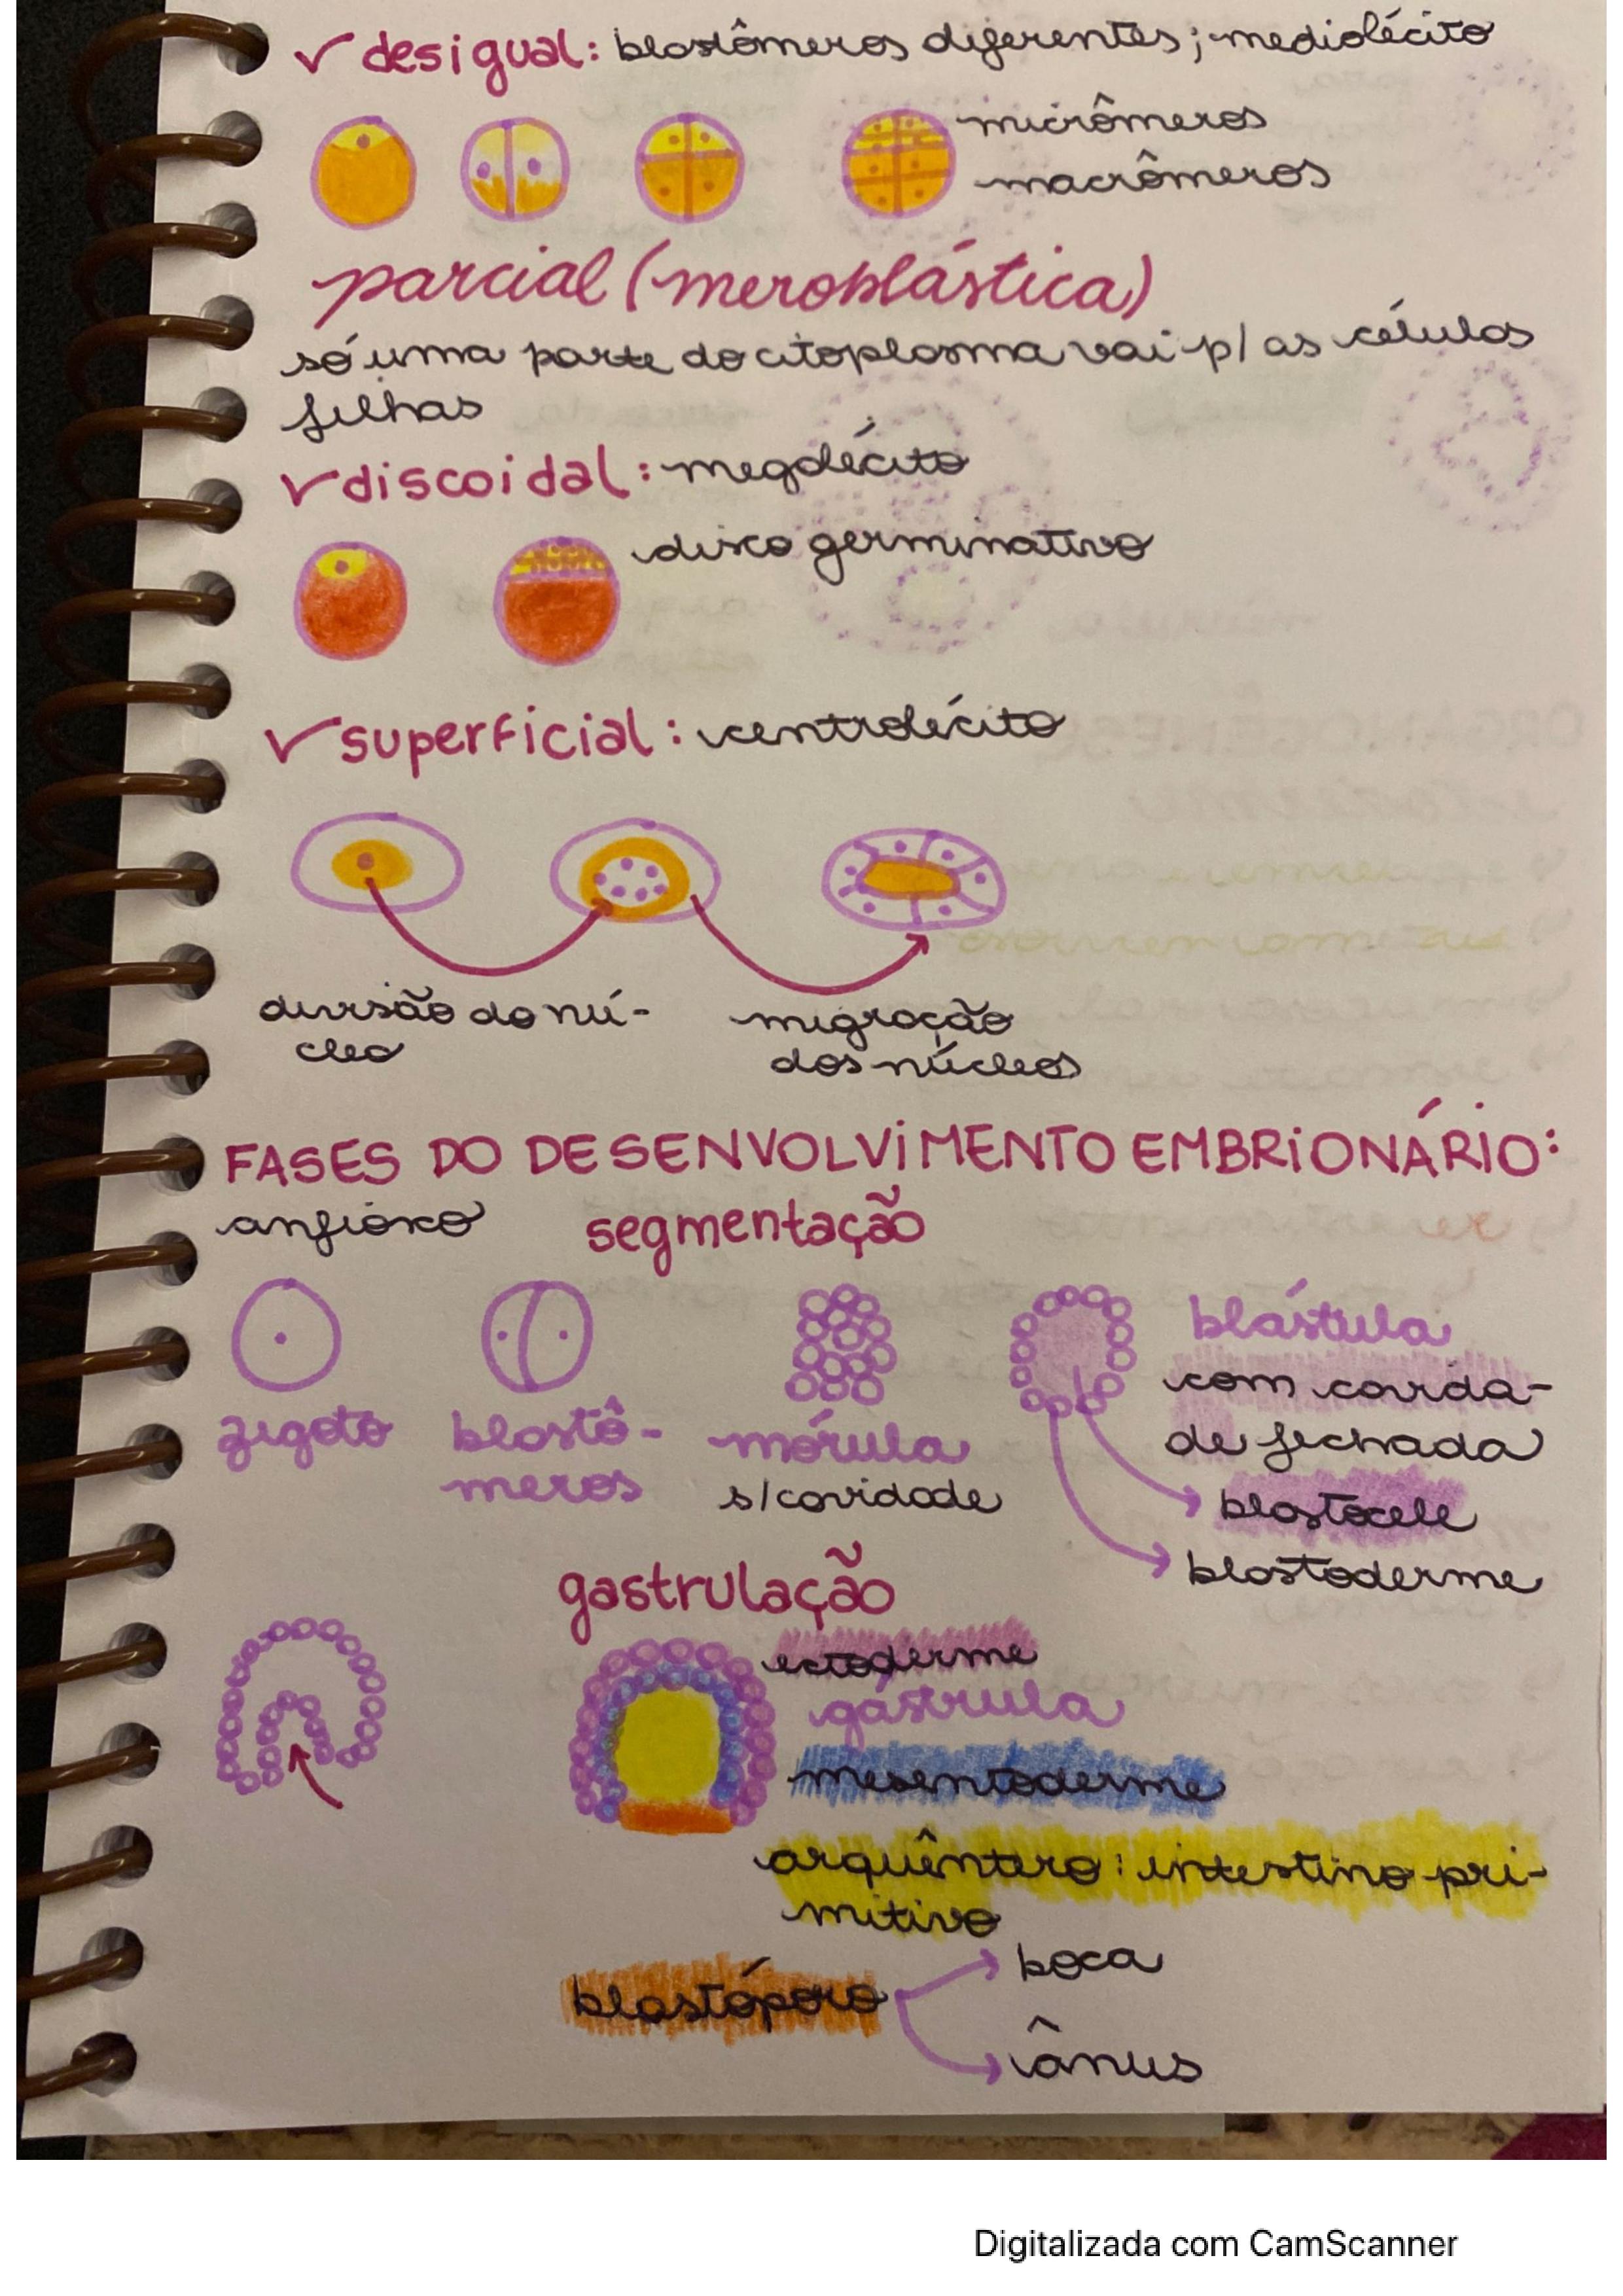 ✓ desigual: blastômeros diferentes; mediolécito
micrômeros
macrômeros
parcial (meroblástica)
só uma parte do citoplasma vai p/ as células
filhas
✓ discoidal: megalécito
disco germinativo
✓ superficial: centrolécito
divisão do nú-
cleo
migração
dos núcleos
FASES DO DESENVOLVIMENTO EMBRIONÁRIO:
anfioxo
segmentação
zigoto
blastô-
meros
mórula
s/cavidade
blástula
com cavida-
de fechada
blastocele
blastoderme
gastrulação
ectoderme
gástrula
mesentoderme
arquêntero: intestino pri-
mitivo
blastóporo
boca
ânus
Digitalizada com CamScanner